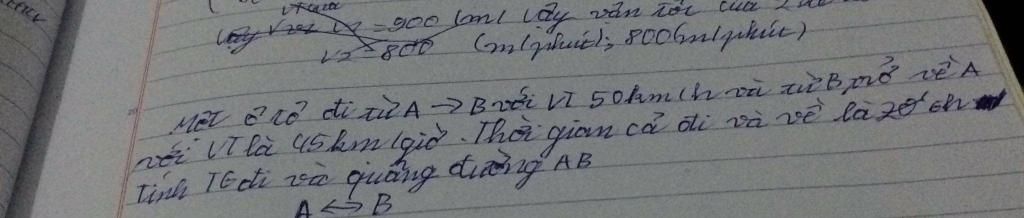 V2 = 900 (m) Vậy vận tốc của 2
V2 = 800 (m/phút); 800(m/phút)
Một ô tô đi từ A → B với VT 50km/h và từ B trở về A
với VT là 45km/giờ. Thời gian cả đi và về là
Tính TG đi và quãng đường AB
A ↔ B